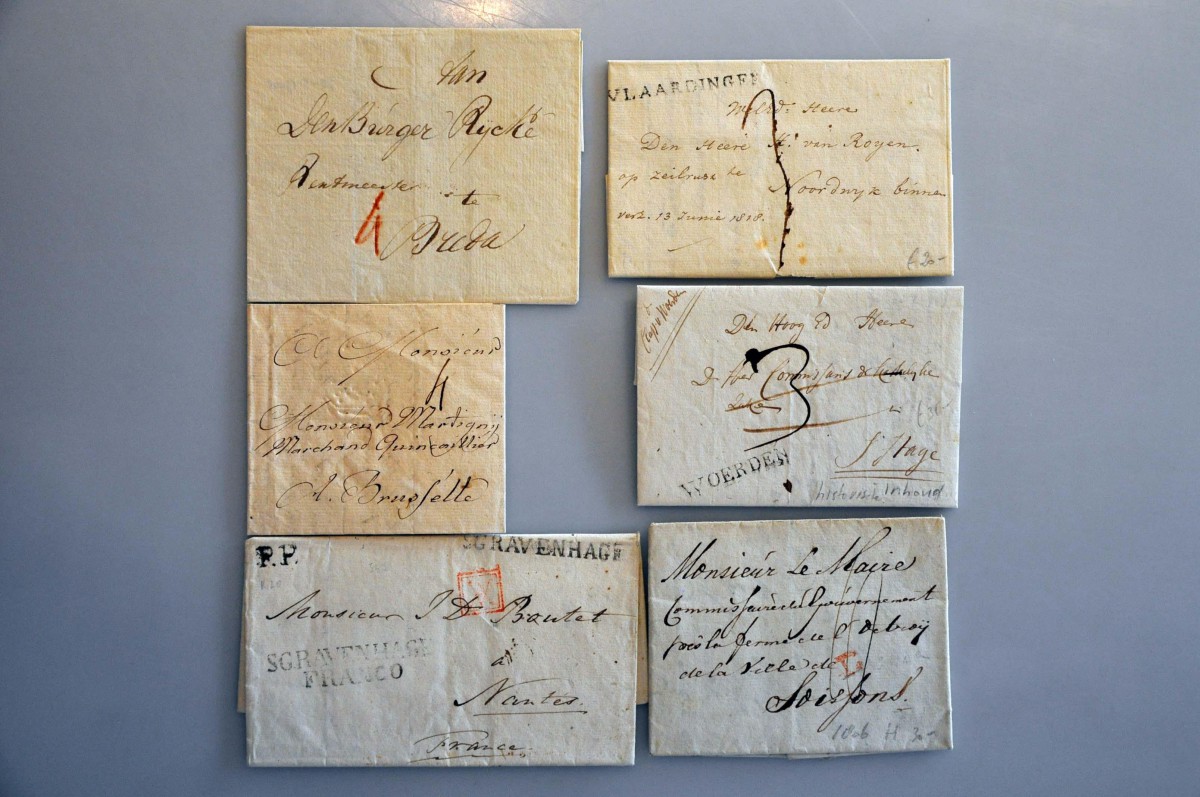 Van
Den Burger Rycke
Rentmeester
te
4
Breda
VLAARDINGEN
WelEd. Heere
Den Heere H. van Royen.
op zeilrust te
Noordwyk binnen
verz. 13 Junie 1818.
£ 20-
A Monsieur
4
Monsieur Martignij
Marchand Quincaillier
A. Brusselle
Den Hoog Ed Heere
3
De Heer Commissaris de
in
S'Hage
WOERDEN
historische Inhoud
P.P.
SGRAVENHAGE
Monsieur J D Bautet
SGRAVENHAGE
FRANCO
a
Nantes.
France
Monsieur Le Maire
Commissaire du Gouvernement
près la ferme de l'Octroij
de la Ville de
Soissons.
1806 H 30-